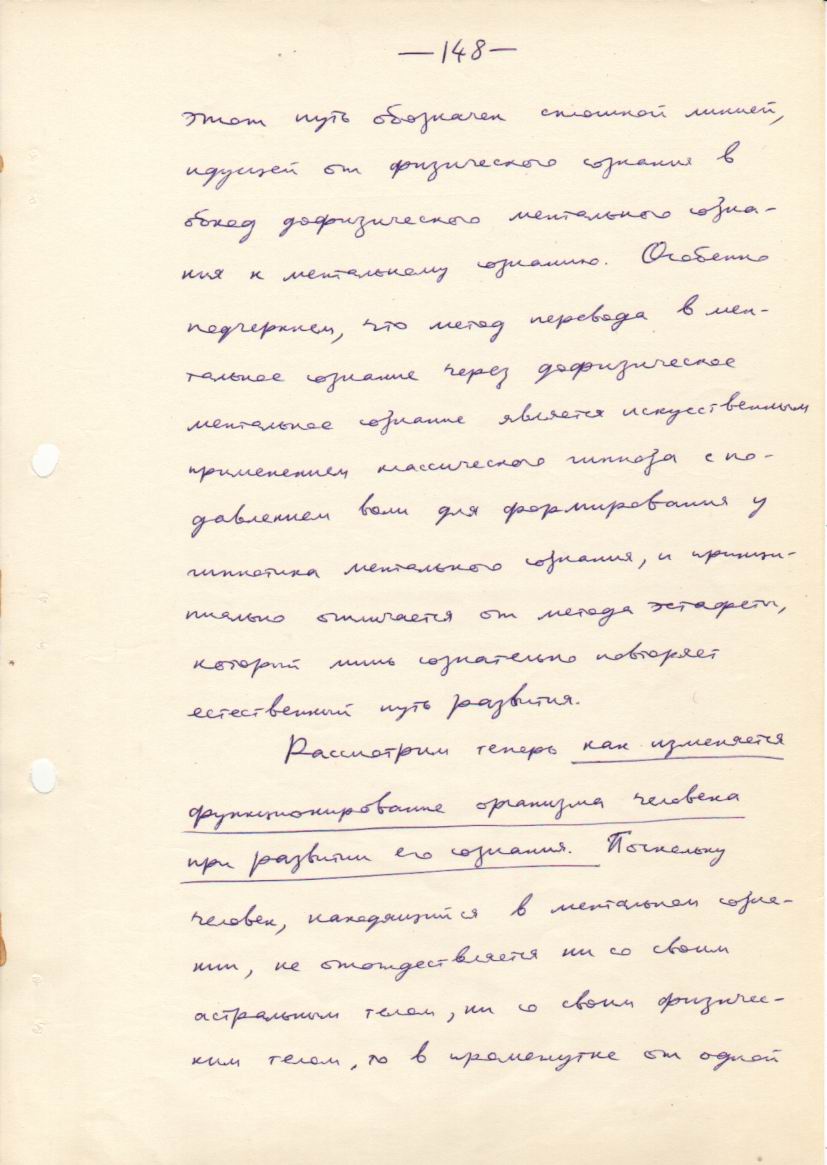 —148—
этот путь обозначен сплошной линией,
идущей от физического сознания в
обход дофизического ментального созна-
ния к ментальному сознанию. Особенно
подчеркнем, что метод перевода в мен-
тальное сознание через дофизическое
ментальное сознание является искусственным
применением классического гипноза с по-
давлением воли для формирования у
гипнотика ментального сознания, и принци-
пиально отличается от метода эстафеты,
который лишь сознательно повторяет
естественный путь развития.
Рассмотрим теперь как изменяется
функционирование организма человека
при развитии его сознания. Поскольку
человек, находящийся в ментальном созна-
нии, не отождествляется ни со своим
астральным телом, ни со своим физичес-
ким телом, то в промежутке от одной